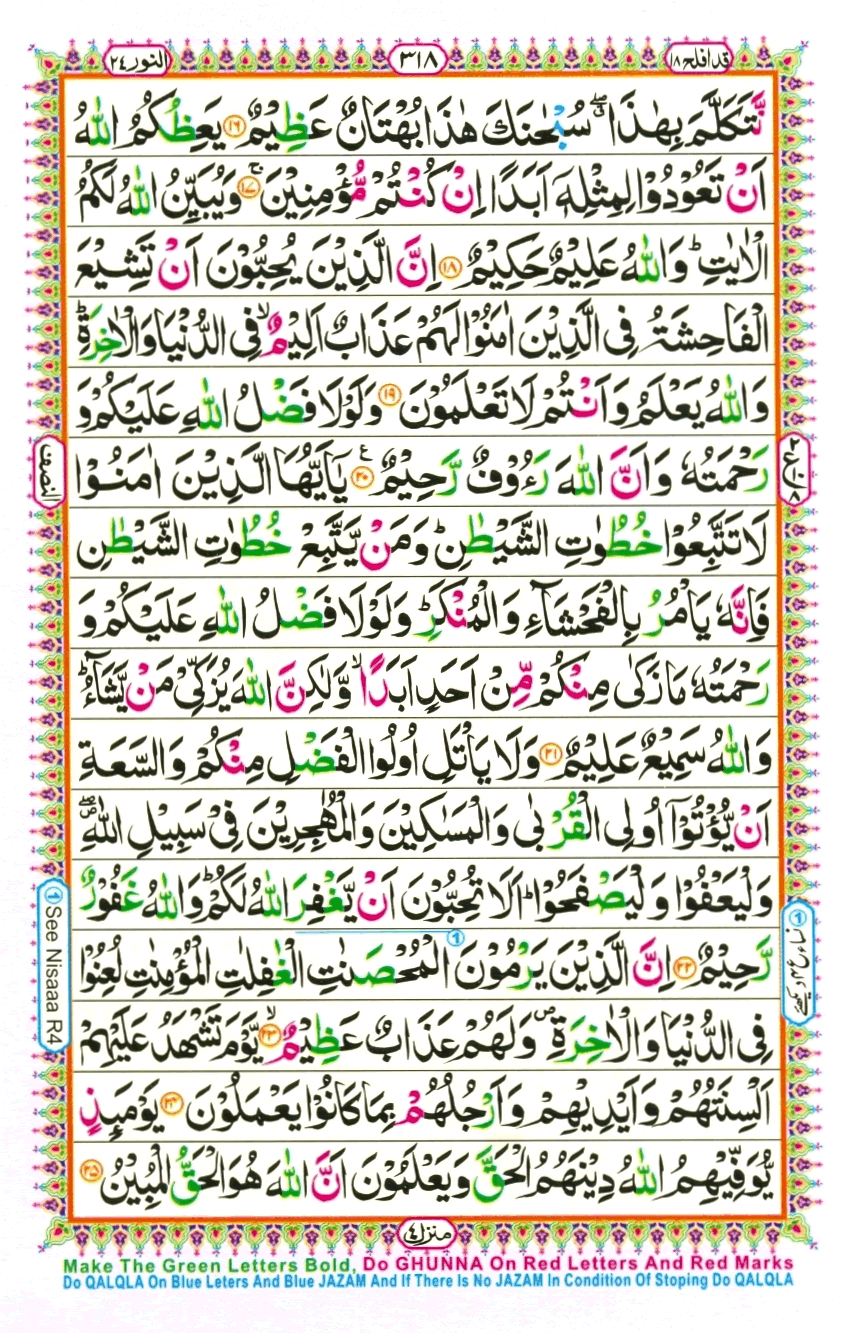 قد افلح ۱۸
۳۱۸
النور ۲۴
نَّتَكَلَّمَ بِهٰذَا ۖ سُبْحٰنَكَ هٰذَا بُهْتَانٌ عَظِيْمٌ ۝۱۶ يَعِظُكُمُ اللّٰهُ
اَنْ تَعُوْدُوْا لِمِثْلِهٖۤ اَبَدًا اِنْ كُنْتُمْ مُّؤْمِنِيْنَ ۚ۝۱۷ وَيُبَيِّنُ اللّٰهُ لَكُمُ
الْاٰيٰتِ ؕ وَاللّٰهُ عَلِيْمٌ حَكِيْمٌ ۝۱۸ اِنَّ الَّذِيْنَ يُحِبُّوْنَ اَنْ تَشِيْعَ
الْفَاحِشَةُ فِى الَّذِيْنَ اٰمَنُوْا لَهُمْ عَذَابٌ اَلِيْمٌ ۙ فِى الدُّنْيَا وَالْاٰخِرَةِ ؕ
وَاللّٰهُ يَعْلَمُ وَاَنْتُمْ لَا تَعْلَمُوْنَ ۝۱۹ وَلَوْلَا فَضْلُ اللّٰهِ عَلَيْكُمْ وَ
رَحْمَتُهٗ وَاَنَّ اللّٰهَ رَءُوْفٌ رَّحِيْمٌ ۝۲۰ ع يٰۤاَيُّهَا الَّذِيْنَ اٰمَنُوْا
لَا تَتَّبِعُوْا خُطُوٰتِ الشَّيْطٰنِ ؕ وَمَنْ يَّتَّبِعْ خُطُوٰتِ الشَّيْطٰنِ
فَاِنَّهٗ يَاْمُرُ بِالْفَحْشَآءِ وَالْمُنْكَرِ ؕ وَلَوْلَا فَضْلُ اللّٰهِ عَلَيْكُمْ وَ
رَحْمَتُهٗ مَا زَكٰى مِنْكُمْ مِّنْ اَحَدٍ اَبَدًا ۙ وَّلٰكِنَّ اللّٰهَ يُزَكِّىْ مَنْ يَّشَآءُ ؕ
وَاللّٰهُ سَمِيْعٌ عَلِيْمٌ ۝۲۱ وَلَا يَاْتَلِ اُولُوا الْفَضْلِ مِنْكُمْ وَالسَّعَةِ
اَنْ يُّؤْتُوْۤا اُولِى الْقُرْبٰى وَالْمَسٰكِيْنَ وَالْمُهٰجِرِيْنَ فِىْ سَبِيْلِ اللّٰهِ ۖ
وَلْيَعْفُوْا وَلْيَصْفَحُوْا ؕ اَلَا تُحِبُّوْنَ اَنْ يَّغْفِرَ اللّٰهُ لَكُمْ ؕ وَاللّٰهُ غَفُوْرٌ
رَّحِيْمٌ ۝۲۲ اِنَّ الَّذِيْنَ يَرْمُوْنَ الْمُحْصَنٰتِ الْغٰفِلٰتِ الْمُؤْمِنٰتِ لُعِنُوْا
فِى الدُّنْيَا وَالْاٰخِرَةِ ۪ وَلَهُمْ عَذَابٌ عَظِيْمٌ ۙ۝۲۳ يَّوْمَ تَشْهَدُ عَلَيْهِمْ
اَلْسِنَتُهُمْ وَاَيْدِيْهِمْ وَاَرْجُلُهُمْ بِمَا كَانُوْا يَعْمَلُوْنَ ۝۲۴ يَوْمَئِذٍ
يُّوَفِّيْهِمُ اللّٰهُ دِيْنَهُمُ الْحَقَّ وَيَعْلَمُوْنَ اَنَّ اللّٰهَ هُوَ الْحَقُّ الْمُبِيْنُ ۝۲۵
النصف
① See Nisaaa R4
منزل ۴
Make The Green Letters Bold, Do GHUNNA On Red Letters And Red Marks
Do QALQLA On Blue Leters And Blue JAZAM And If There Is No JAZAM In Condition Of Stoping Do QALQLA